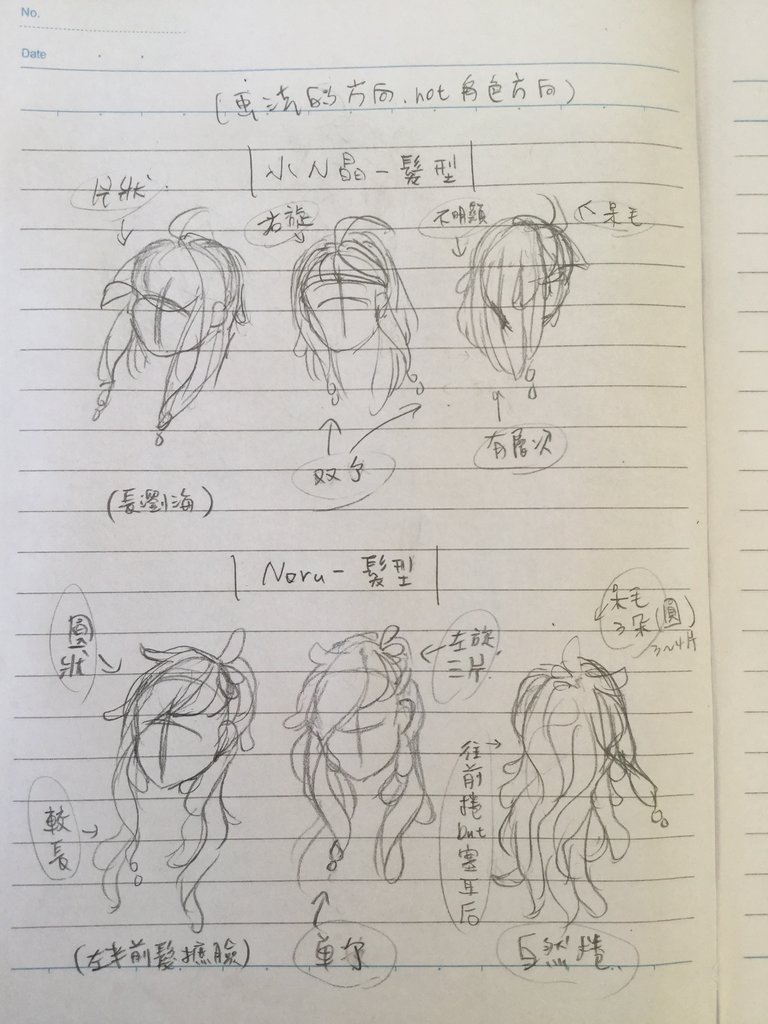 No.
Date
(畫法的方向.not角色方向)
小N晶-髮型
片狀
右旋
不明顯
呆毛
双
有層次
(長瀏海)
Noru-髮型
圓狀
左旋
三片
呆毛
3朵(圓)
3~4片
較長
往前捲but塞耳后
(左半前髮擋臉)
單
自然捲